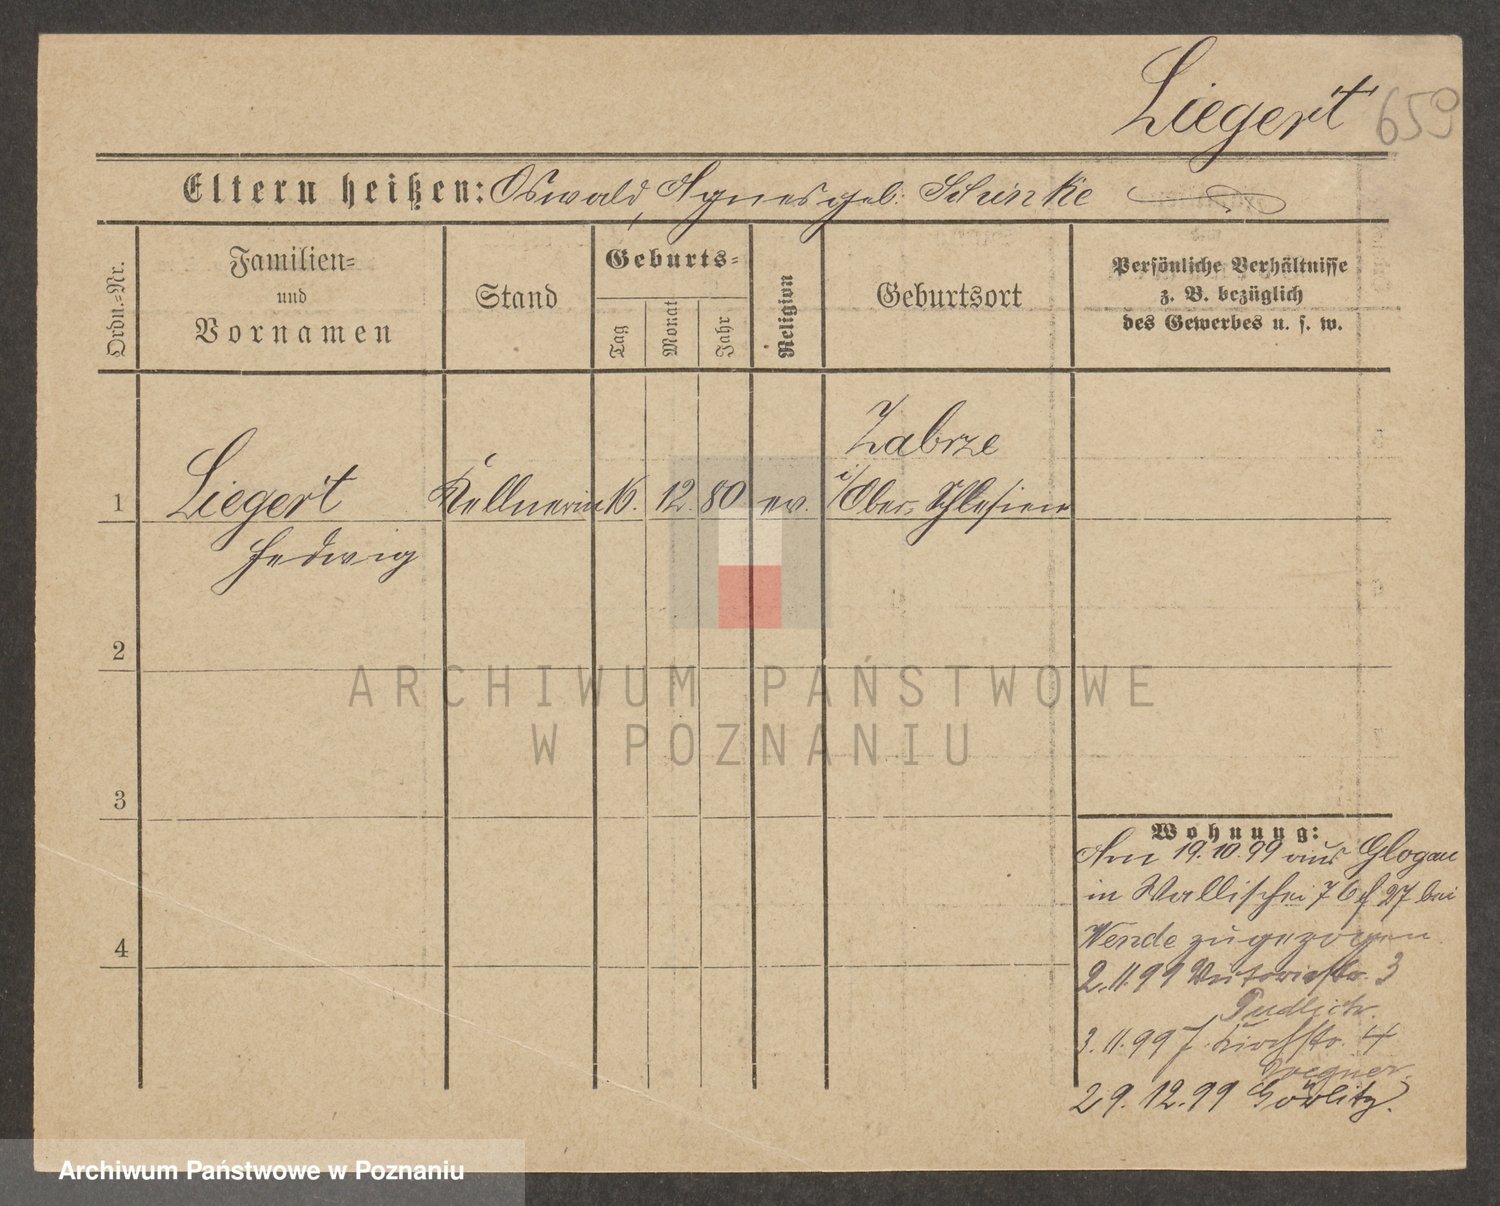 Liegert 659
Eltern heißen: Oswald, Agnes geb. Schinke
Ordn.-Nr.
Familien-
und
Vornamen
Stand
Geburts-
Tag
Monat
Jahr
Religion
Geburtsort
Persönliche Verhältnisse
z. B. bezüglich
des Gewerbes u. s. w.
Zabrze
1 Liegert Kellnerin 16. 12. 80 ev. i/Ober-Schlesien
Hedwig
2
3
4
Wohnung:
Am 19.10.99 aus Glogau
in Wallischei 76 f 27 bei
Wende zugezogen
2.11.99 Victoriastr. 3
3.11.99 Kirchstr. 4
Wegner.
29.12.99 Görlitz.
ARCHIWUM PAŃSTWOWE
W POZNANIU
Archiwum Państwowe w Poznaniu